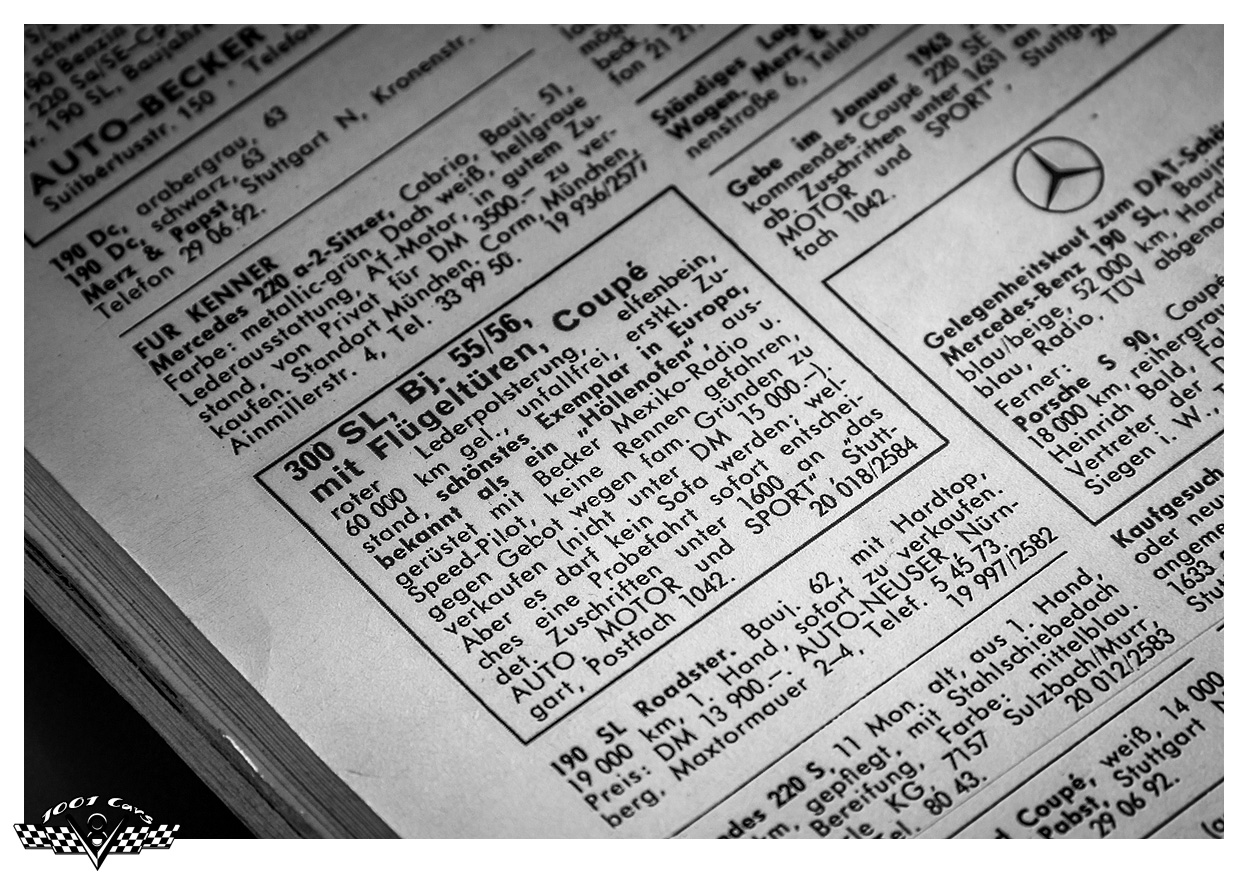 190 Benzin
220 Sa/SE-Cp
190 SL, Baujahr
AUTO-BECKER
Suitbertusstr. 150 · Telefon
190 Dc, arabergrau, 63
190 Dc, schwarz, 63
Merz & Papst, Stuttgart N, Kronenstr.
Telefon 29 06 92.
FÜR KENNER
Mercedes 220 a-2-Sitzer, Cabrio, Bauj. 51,
Farbe: metallic-grün, Dach weiß, hellgraue
Lederausstattung, AT-Motor, in gutem Zu-
stand, von Privat für DM 3500.— zu ver-
kaufen, Standort München. Corm, München,
Ainmillerstr. 4, Tel. 33 99 50. 19 936/2577
300 SL, Bj. 55/56,
mit Flügeltüren, Coupé
roter Lederpolsterung, elfenbein,
60 000 km gel., unfallfrei, erstkl. Zu-
stand, schönstes Exemplar in Europa,
bekannt als ein „Höllenofen", aus-
gerüstet mit Becker Mexiko-Radio u.
Speed-Pilot, keine Rennen gefahren,
gegen Gebot wegen fam. Gründen zu
verkaufen (nicht unter DM 15 000.—).
Aber es darf kein Sofa werden; wel-
ches eine Probefahrt sofort entschei-
det. Zuschriften unter 1600 an „das
AUTO MOTOR und SPORT", Stutt-
gart, Postfach 1042. 20 018/2584
190 SL Roadster. Bauj. 62, mit Hardtop,
19 000 km, 1. Hand, sofort zu verkaufen.
Preis: DM 13 900.—. AUTO-NEUSER, Nürn-
berg, Maxtormauer 2–4, Telef. 5 45 73.
19 997/2582
220 S, 11 Mon. alt, aus 1. Hand,
gepflegt, mit Stahlschiebedach
Bereifung, Farbe: mittelblau.
KG, 7157 Sulzbach/Murr,
80 43. 20 012/2583
Coupé, weiß, 14 000
Pabst, Stuttgart N
29 06 92.
fon 21 21
Ständiges
Wagen, Merz &
nenstraße 6, Telefon
Gebe im Januar 1963
kommendes Coupé 220 SE
ab. Zuschriften unter 1631 an
MOTOR und SPORT",
fach 1042.
Gelegenheitskauf zum DAT-Schä
Mercedes-Benz 190 SL, Bauj
blau/beige, 52 000 km, Hard
blau, Radio, TÜV abgenom
Ferner:
Porsche S 90, Coupé
18 000 km, reihergrau
Heinrich Bald,
Vertreter der D
Siegen i. W.,
Kaufgesuch
oder neu
angem
1633
Stu
1001 Cars